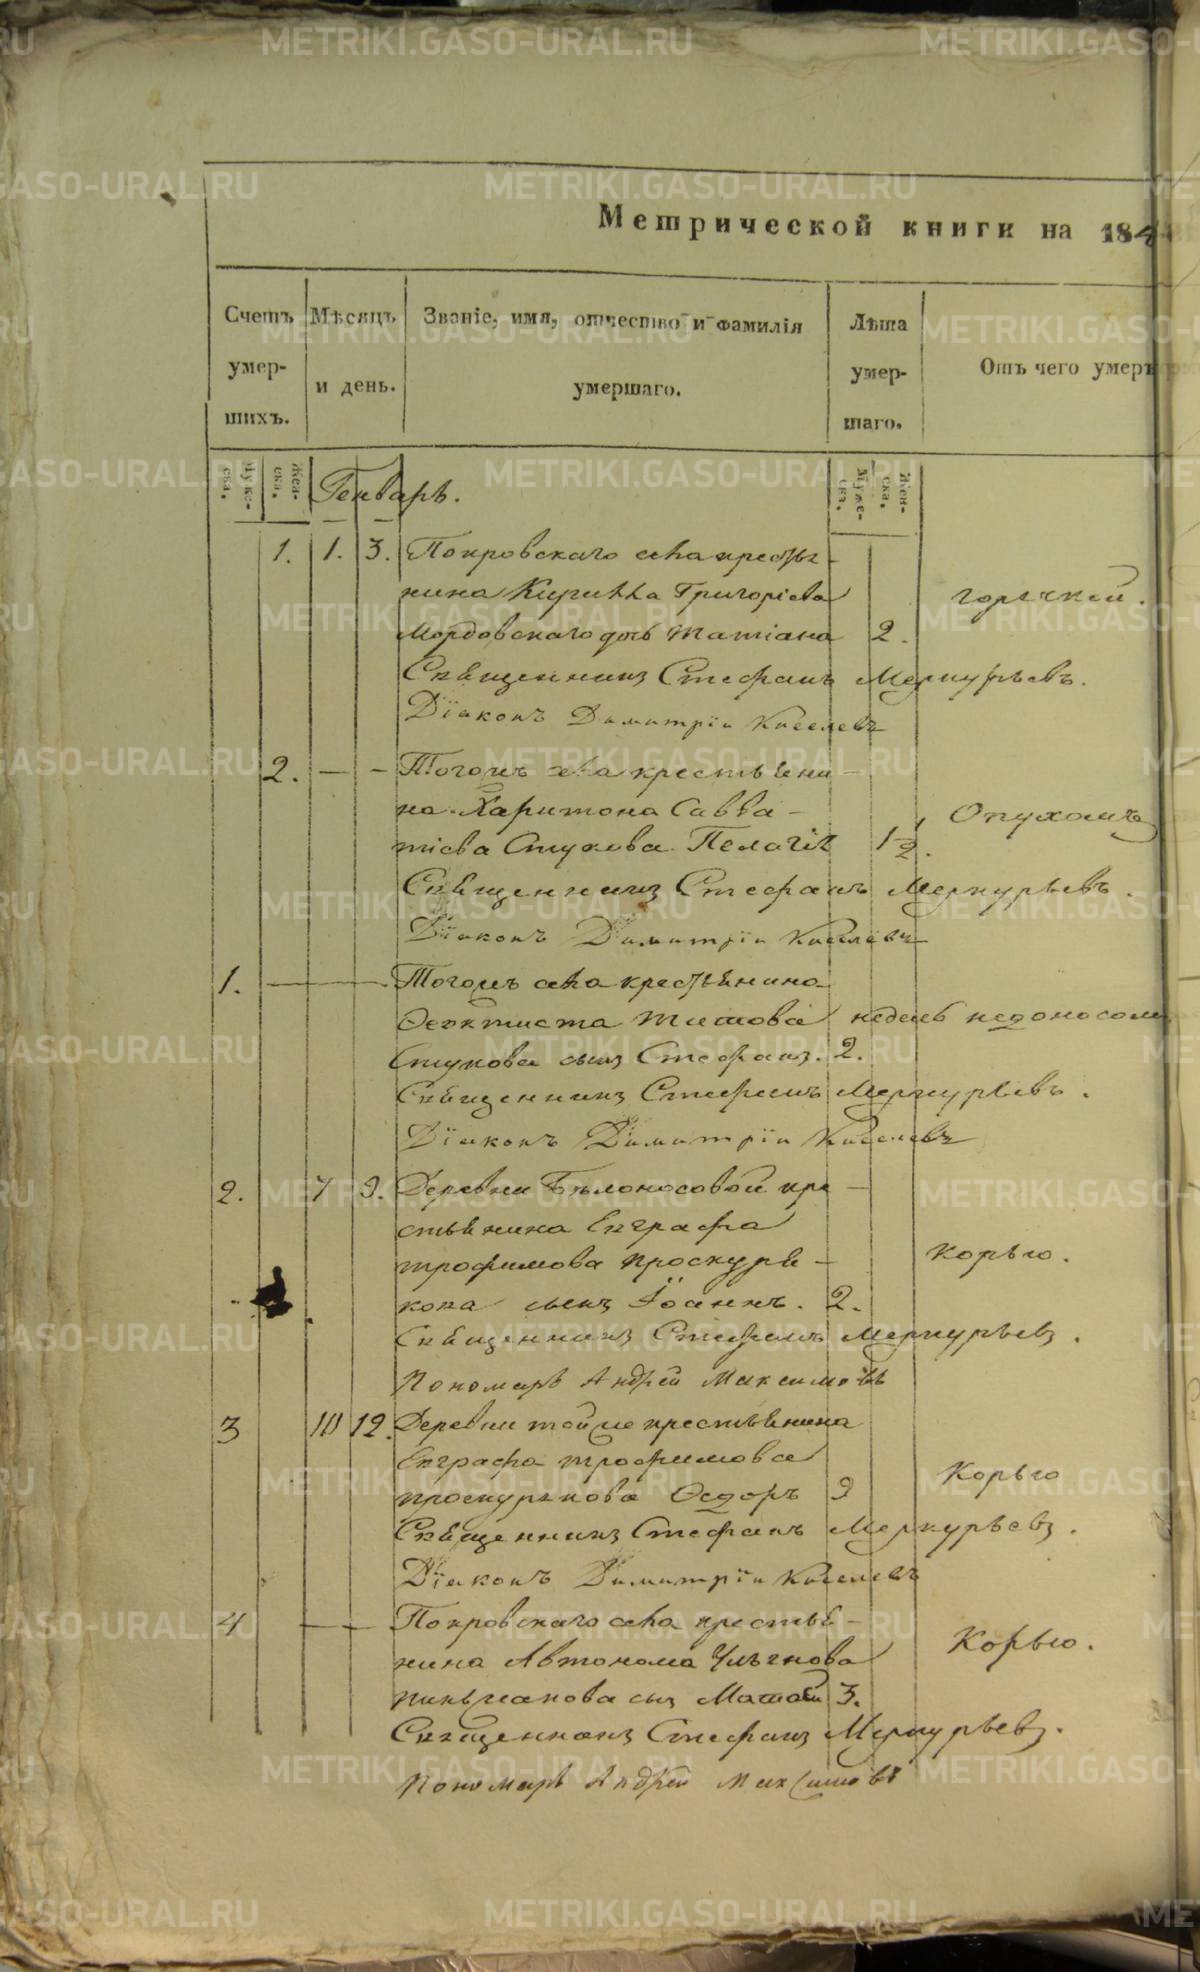 Метрической книги на 184
Счетъ умер- шихъ.
Мѣсяцъ и день.
Званіе, имя, отчество и фамилія умершаго.
Лѣта умер- шаго.
Отъ чего умеръ
Муже- ска.
Жен- ска.
Генварь.
Муже- ск.
Жен- ска.
1. 1. 3. Покровскаго села крестья-
нина Григоріева горячкой.
Мордовскаго дочь Татіана 2.
Священникъ Стефанъ Меркурьевъ.
Діаконъ Димитрій Киселевъ
2. — – Тогожъ села крестьяни-
на Харитона Савва- Опухолью
тіева Стукова Пелагія 1 1/2.
Священникъ Стефанъ Меркурьевъ.
Діаконъ Димитрій Киселевъ
1. Тогожъ села крестьянина
Ѳеоктиста Титова недель недоноском
Стукова сынъ Стефанъ. 2.
Священникъ Стефанъ Меркурьевъ.
Діаконъ Димитрій Киселевъ
2. 7 9. Деревни Бѣлоносовой кре-
стьянина Евграфа
трофимова проскуря- Корью.
кова сынъ Іоаннъ. 2.
Священникъ Стефанъ Меркурьевъ.
Пономарь Андрей Максимовъ
3 10 12. Деревни тойже крестьянина
Евграфа трофимова Корью
проскурякова Ѳедоръ 9
Священникъ Стефанъ Меркурьевъ.
Діаконъ Димитрій Киселевъ
4 — — Покровскаго села крестья-
нина Автонома Корью.
сынъ Матѳей 3.
Священникъ Стефанъ Меркурьевъ.
Пономарь Андрей Максимовъ
METRIKI.GASO-URAL.RU